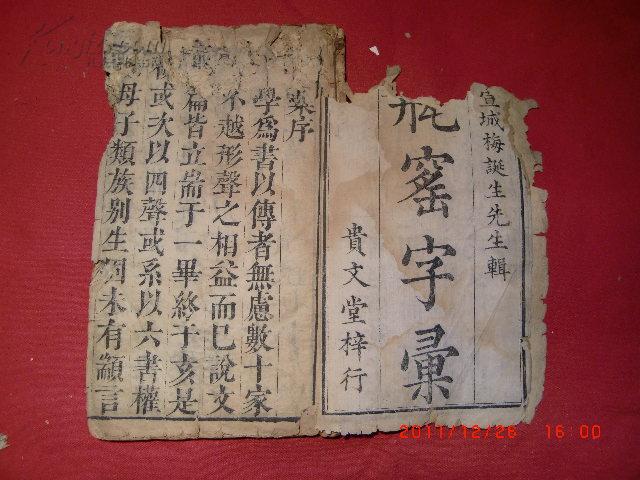 宣城梅誕生先生輯
窰字彙
貴文堂梓行
彙序
學爲書以傳者無慮數十家
不越形聲之相益而已說文
篇皆立耑于一畢終于亥是
或次以四聲或系以六書權
母子類族别生固未有顓言
2011/12/26 16:00